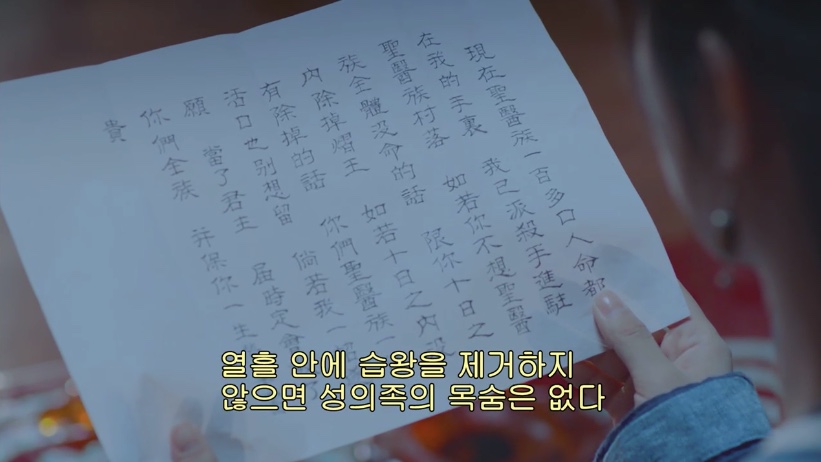 現在聖醫族一百多口人命都
在我的手裏 我已派殺手進駐
聖醫族村落 如若你不想聖醫
族全體沒命的話 限你十日之
內除掉熠王 如若十日之內沒
有除掉的話 你們聖醫族一
活口也別想留 倘若我一
願 當了君主 屆時定會
你們全族 并保你一生
貴
열흘 안에 습왕을 제거하지
않으면 성의족의 목숨은 없다